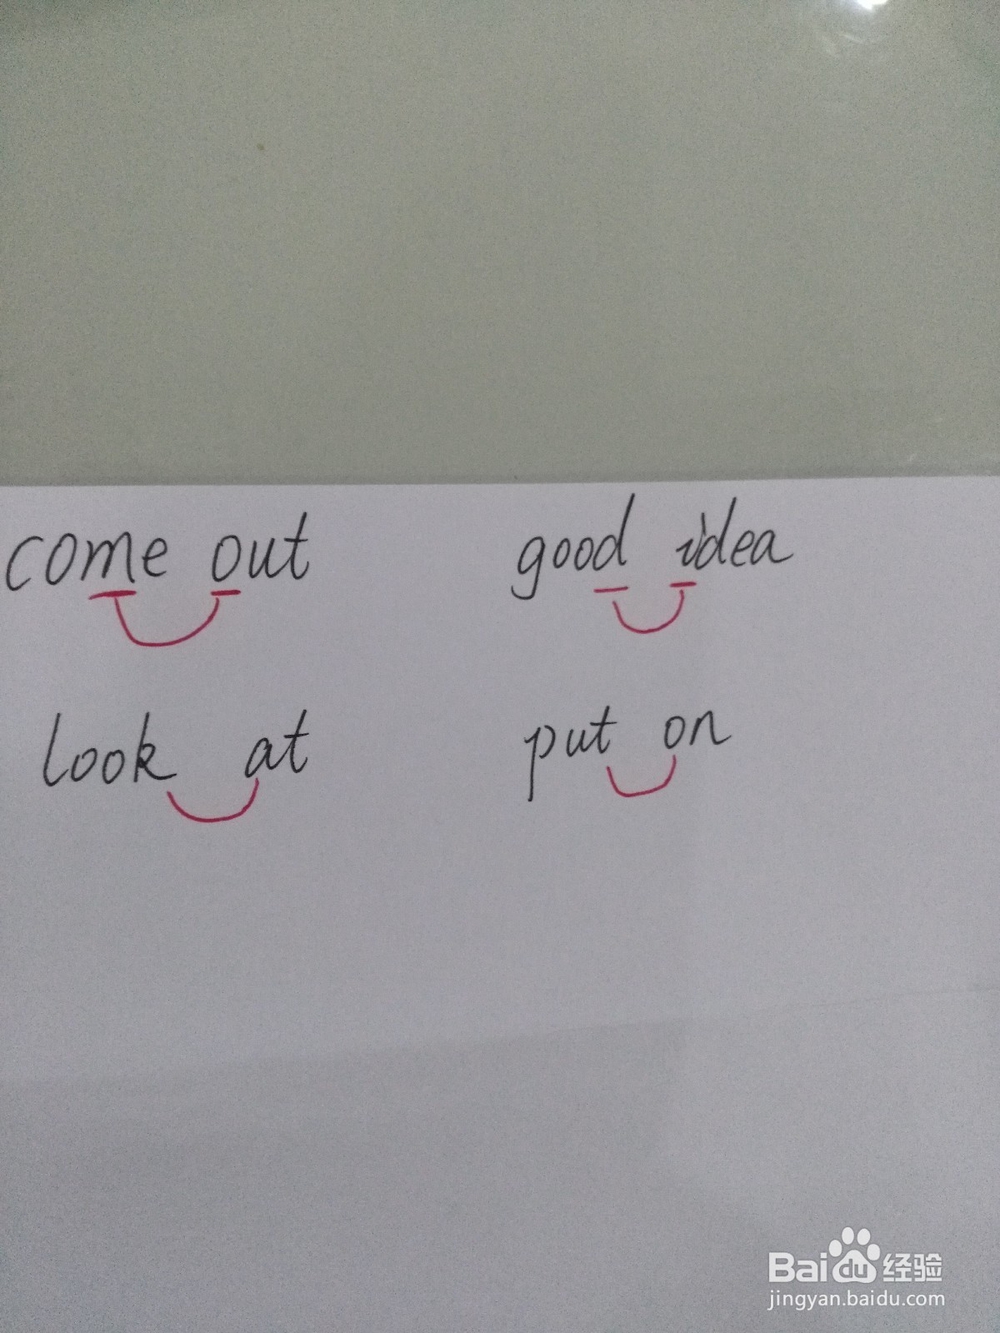 come out good idea
look at put on
Baidu经验
jingyan.baidu.com